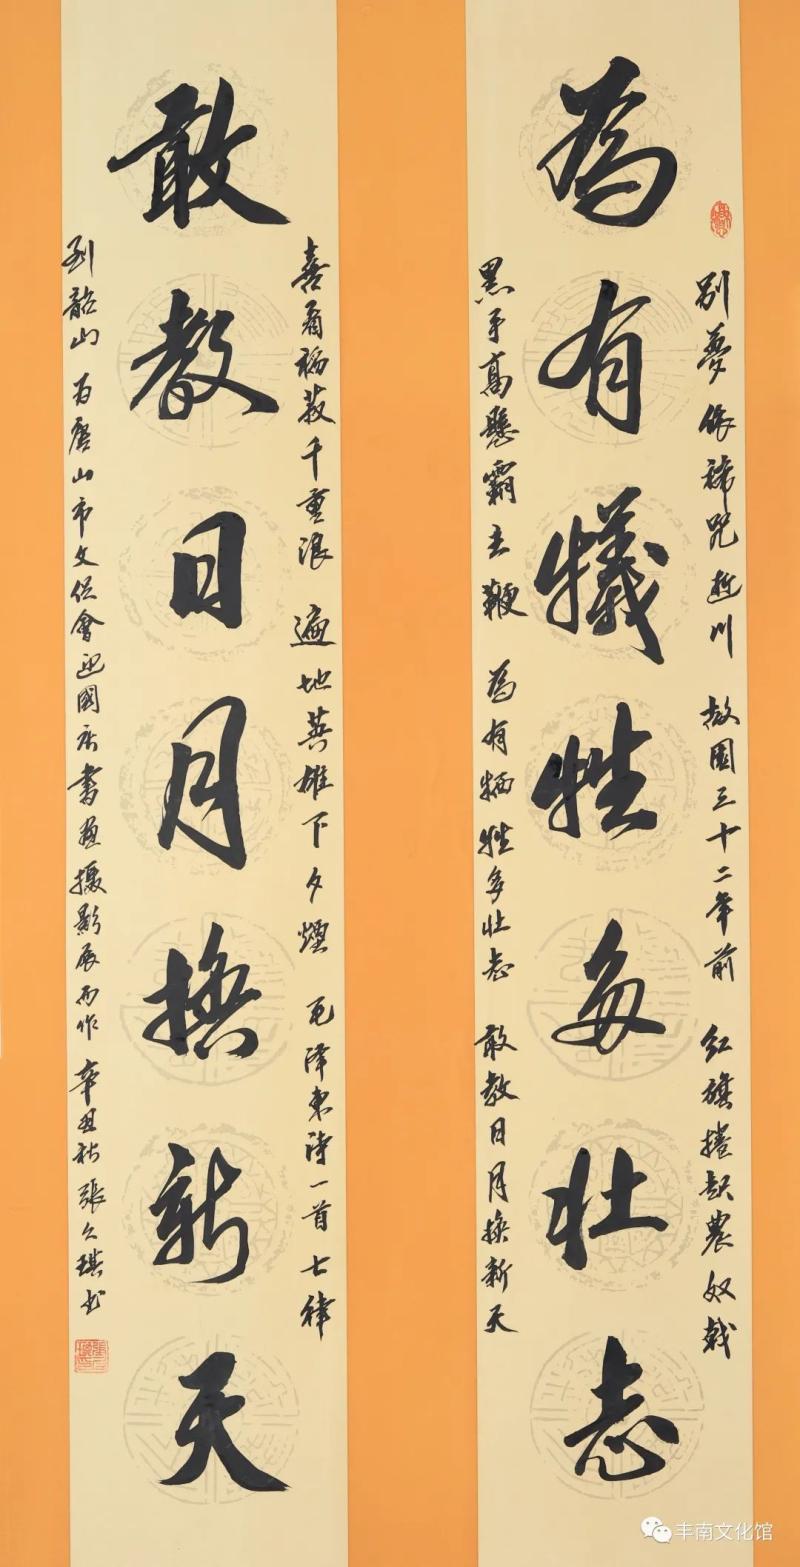 為有犧牲多壮志
敢教日月换新天
别夢依稀咒逝川 故園三十二年前 红旗捲起農奴戟
黑手高懸霸主鞭 為有牺牲多壮志 敢教日月换新天
喜看稻菽千重浪 遍地英雄下夕煙 毛泽東诗一首七律
到韶山 为唐山市文促會迎國庆書画攝影展而作 辛丑秋 張久琪书
丰南文化馆